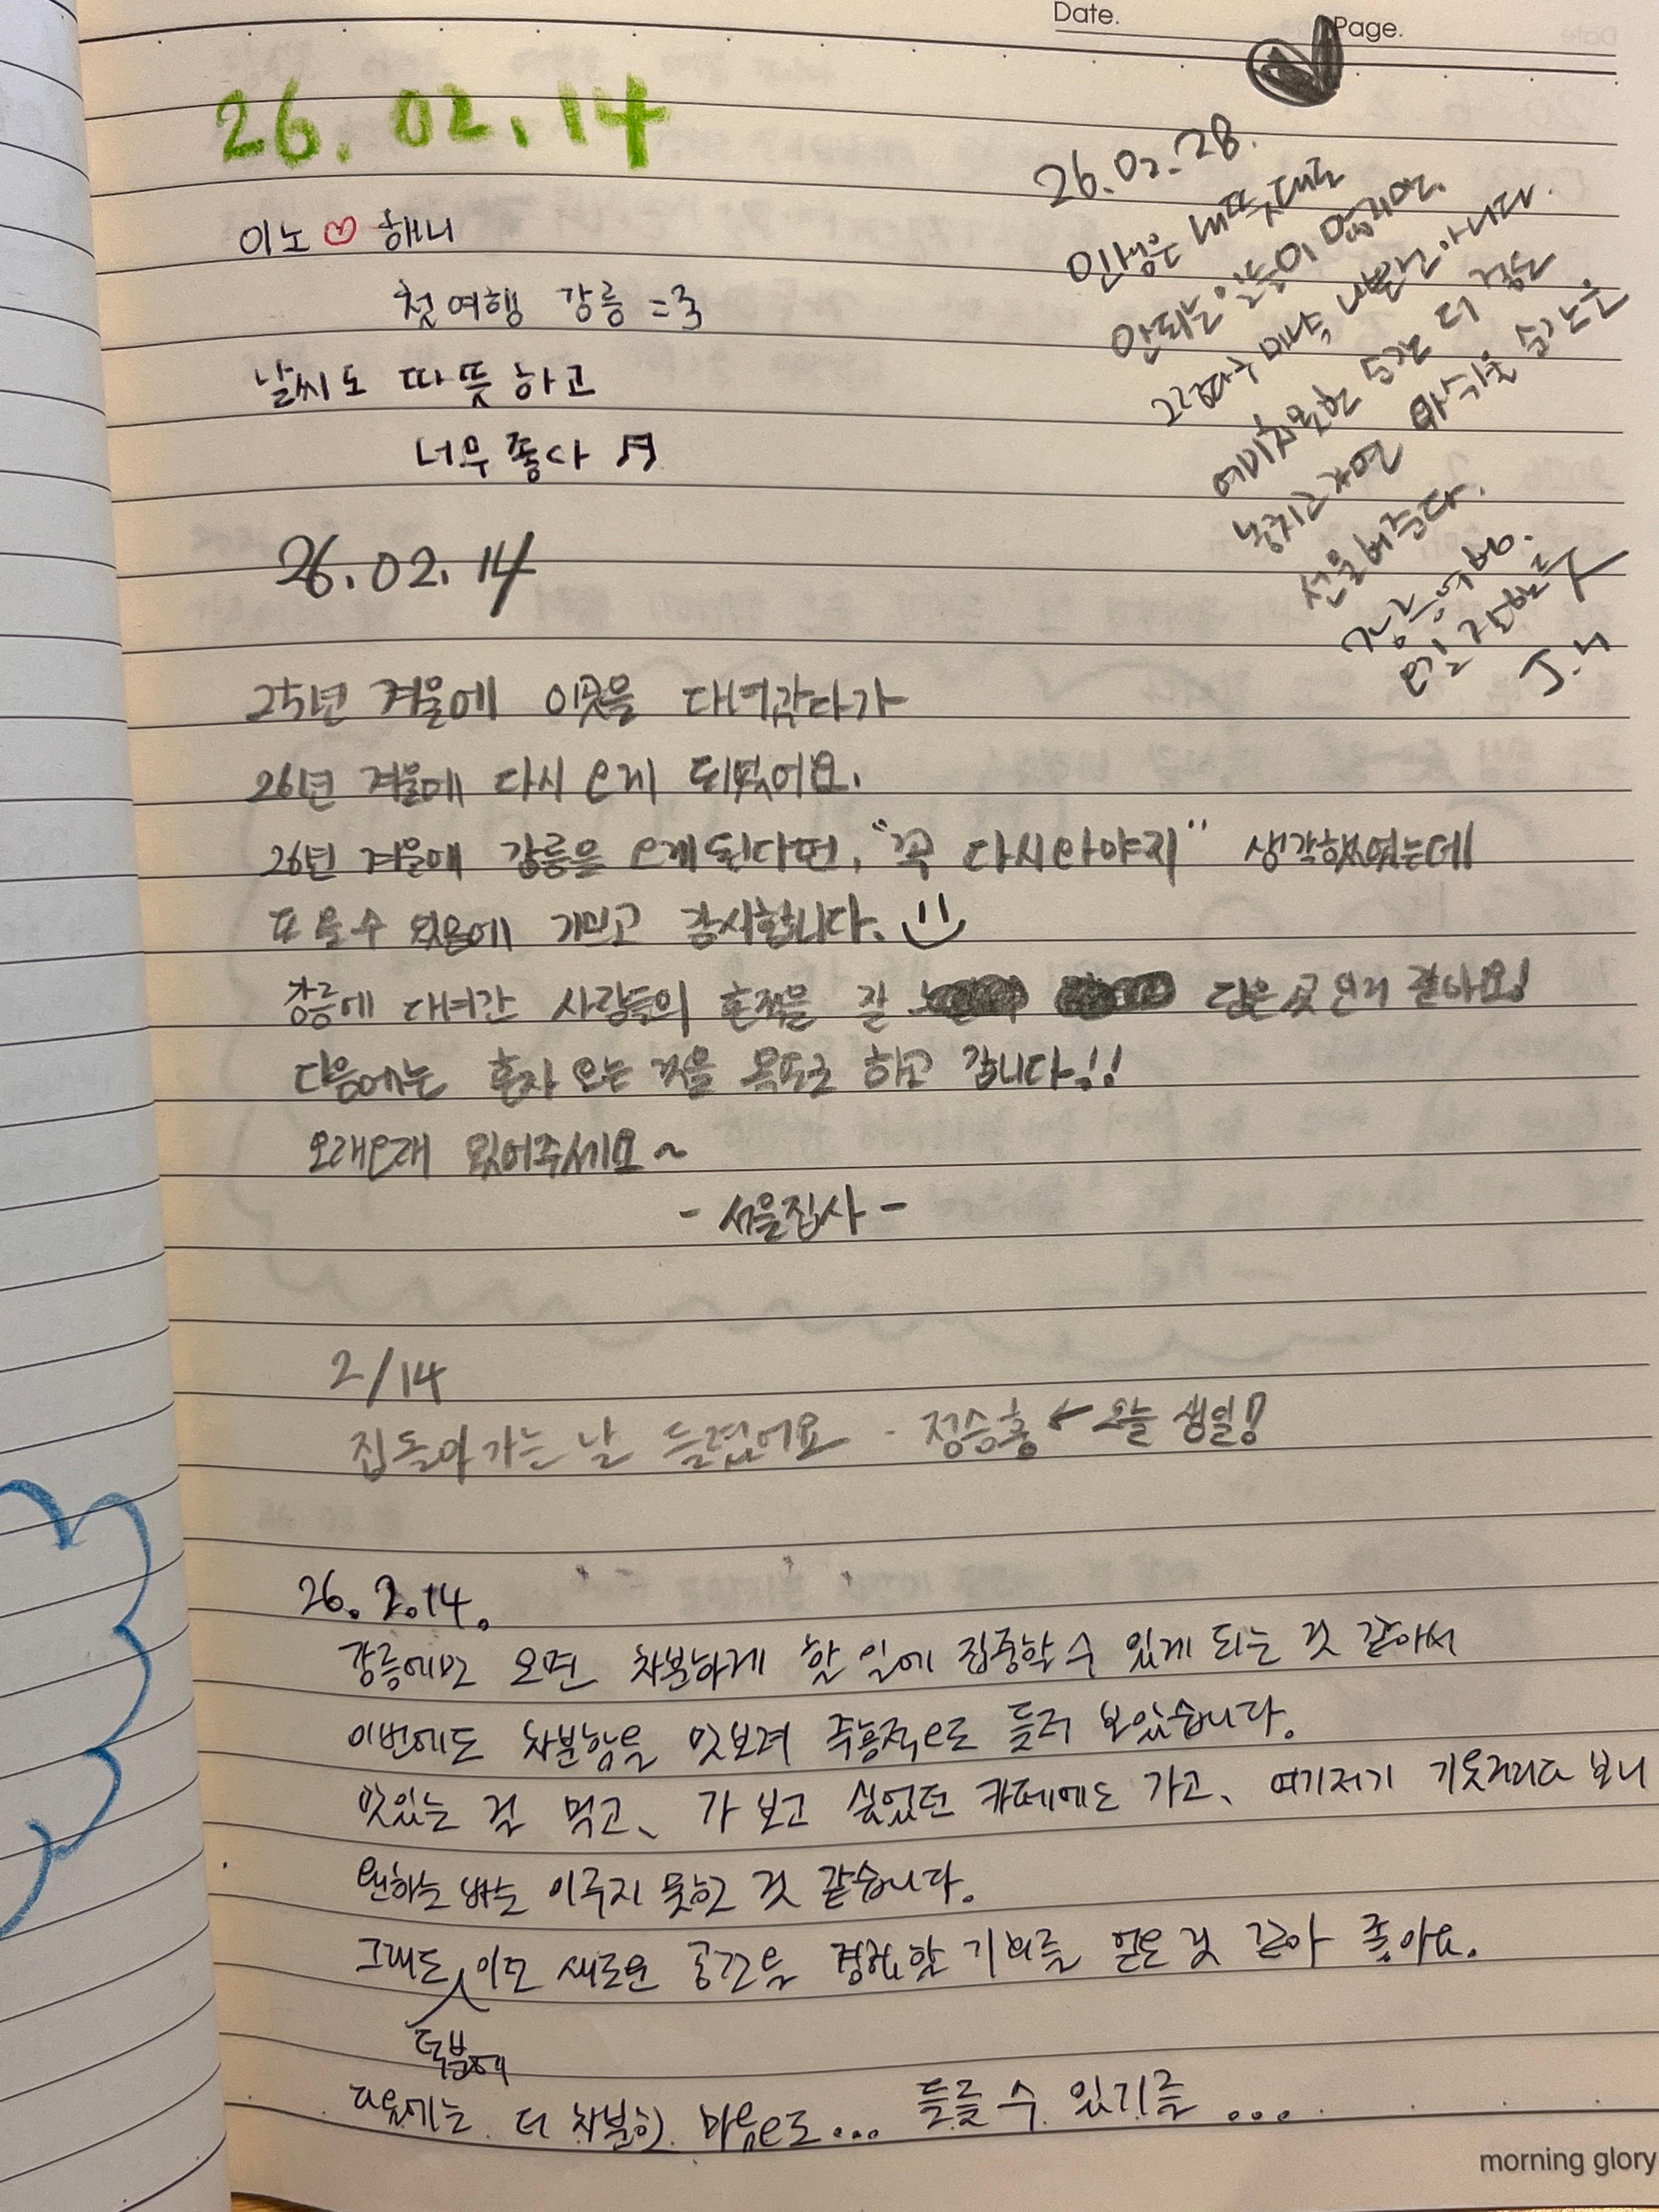 Date.
Page.
26.02.14
이노♡해니
첫여행 강릉=3
날씨도 따뜻하고
너무 좋다 ♬
26.02.28.
인생은 내뜻대로
안되는 일들이 많지만.
그렇다구 마냥 나쁜건 아니다.
예기치못한 순간 더 깊은
놓치고 싶지
선물해준다.
강릉여행.
J.H
26.02.14
25년 겨울에 이곳을 다녀갔다가
26년 겨울에 다시 오게 되었어요.
26년 겨울에 강릉을 오게된다면, "꼭 다시와야지" 생각했었는데
또 올 수 있음에 기쁘고 감사합니다.
강릉에 다녀간 사람들의 흔적을 잘 담은 곳인거 같아요!
다음에는 혼자 오는 것을 목표로 하고 갑니다!!
오래오래 있어주세요~
- 서울집사 -
2/14
집돌아가는 날 들렀어요 - 정승홍 ← 오늘 생일!
26.2.14.
강릉에만 오면 차분하게 할 일에 집중할 수 있게 되는 것 같아서
이번에도 차분함을 맛보려 즉흥적으로 들러 보았습니다.
맛있는 걸 먹고, 가 보고 싶었던 카페에도 가고, 여기저기 기웃거리다 보니
원하는 바는 이루지 못한 것 같습니다.
그래도 덕분에 이런 새로운 공간을 경험할 기회를 얻은 것 같아 좋아요.
다음에는 더 차분한 마음으로... 들를 수 있기를...
morning glory